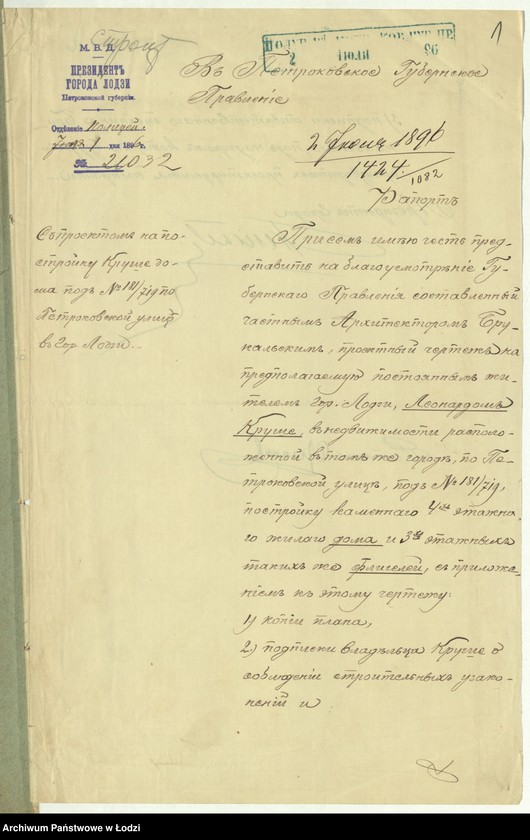 1
Строит
М. В. Д.
ПРЕЗИДЕНТЪ
ГОРОДА ЛОДЗИ
Петроковской губерніи.
Отдѣленіе Полицей.
1 дня 1896 г.
№ 21032
2 ІЮЛИ 96
Въ Петроковское Губернское
Правленіе
1896
1424/1082
Рапортъ
Съ проектомъ на по-
стройку Круше до-
ма подъ № 181/719 по
Петроковской улицѣ
въ гор. Лодзи.
При семъ имѣю честь пред-
ставить на благоусмотрѣніе Гу-
бернскаго Правленія составленный
частнымъ Архитекторомъ Бру-
кальскимъ, проектный чертежъ на
предполагаемую постояннымъ жи-
телемъ гор. Лодзи, Леонардомъ
Круше, въ недвижимости располо-
женной въ томъ же городѣ, по Пе-
троковской улицѣ, подъ № 181/719,
постройку каменнаго 4хъ этажна-
го жилаго дома и 3хъ этажныхъ
такихъ же флигелей, съ приложе-
ніемъ къ этому чертежу:
1) копіи плана,
2) подписки владѣльца Круше о
соблюденіи строительныхъ узако-
неній и
Archiwum Państwowe w Łodzi